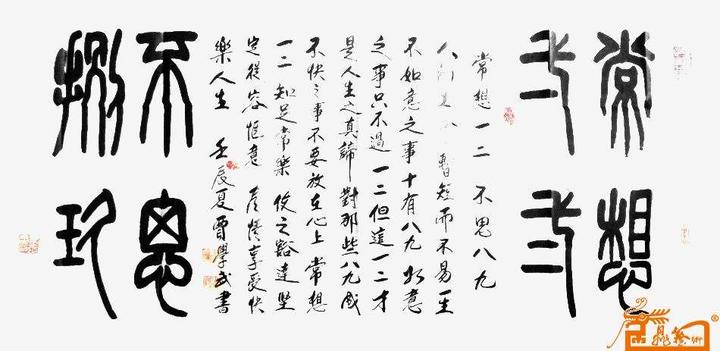 常想
弌弍
常想一二 不思八九
人 生 暫短而不易一生
不如意之事十有八九 如意
之事只不過一二但這一二才
是人生之真諦對那些八九成
不快之事不要放在心上 常想
一二 知足常樂 使之豁達堅
定從容愜意 悟享受快
樂人生 壬辰夏賈學武書
不思
捌玖